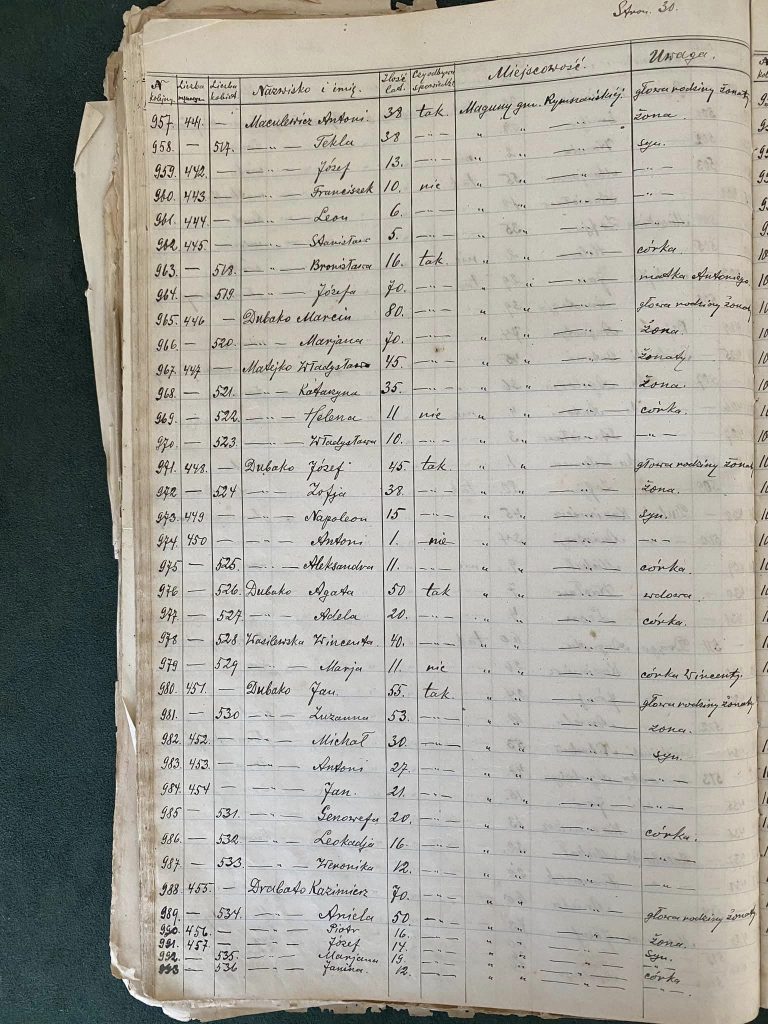 Stron. 30.
N kolejny. Liczba mężczyzn Liczba kobiet Nazwisko i imię. Ilość lat. Czy odbywa spowiedź Miejscowość. Uwaga.
957. 441. — Maculewicz Antoni. 38 tak. Maguny gm. Rymszańskiej. głowa rodziny żonaty
958. — 517. —„— Tekla 38 —„— „ „ —„— żona.
959. 442. — —„— Józef 13. —„— „ „ —„— syn.
960. 443. — —„— Franciszek 10. nie „ „ —„— —„—
961. 444. — —„— Leon 6. —„— „ „ —„— —„—
962. 445. — —„— Stanisław 5. —„— „ „ —„— —„—
963. — 518. —„— Bronisława 16. tak. „ „ —„— córka.
964. — 519. —„— Józefa 70. —„— „ „ —„— matka Antoniego.
965. 446 — Dubako Marcin 80. —„— „ „ —„— głowa rodziny żonaty
966. — 520. —„— Marjana 70. —„— „ „ —„— żona.
967. 447 — Matejko Władysław 45. —„— „ „ —„— żonaty
968. — 521. —„— Katarzyna 35. —„— „ „ —„— żona.
969. — 522. —„— Helena 11 nie „ „ —„— córka.
970. — 523. —„— Władysława 10. —„— „ „ —„— —„—
971. 448. — Dubako Józef 45. tak. „ „ —„— głowa rodziny żonaty
972 — 524 —„— Zofja 38. —„— „ „ —„— żona.
973. 449 — —„— Napoleon 15 —„— „ „ —„— syn.
974. 450 — —„— Antoni 1. nie „ „ —„— —„—
975 — 525. —„— Aleksandra 11. —„— „ „ —„— córka.
976 — 526. Dubako Agata 50 tak „ „ —„— wdowa.
977. — 527. —„— Adela 20. —„— „ „ —„— córka.
978 — 528. Wasilewska Wincenta. 40. —„— „ „ —„—
979 — 529 —„— Marja 11. nie „ „ —„— córka Wincenty.
980. 451. — Dubako Jan. 55. tak. „ „ —„— głowa rodziny żonaty
981. — 530 —„— Zuzanna 53. —„— „ „ —„— żona.
982. 452. — —„— Michał 30. —„— „ „ —„— syn.
983. 453. — —„— Antoni 27. —„— „ „ —„— —„—
984. 454 — —„— Jan. 21. —„— „ „ —„— —„—
985 — 531. —„— Genowefa 20. —„— „ „ —„— córka.
986. — 532. —„— Leokadja 16. —„— „ „ —„— —„—
987. — 533. —„— Weronika 12. —„— „ „ —„— —„—
988 455. — Drabato Kazimierz 70. —„— „ „ —„— głowa rodziny żonaty
989. — 534. —„— Aniela 50 —„— „ „ —„— żona.
990. 456. — —„— Piotr 16. —„— „ „ —„— syn.
991. 457. — —„— Józef 14. —„— „ „ —„— —„—
992. — 535. —„— Marjana 19. —„— „ „ —„— córka
993 — 536 —„— Janina 12. —„— „ „ —„— —„—